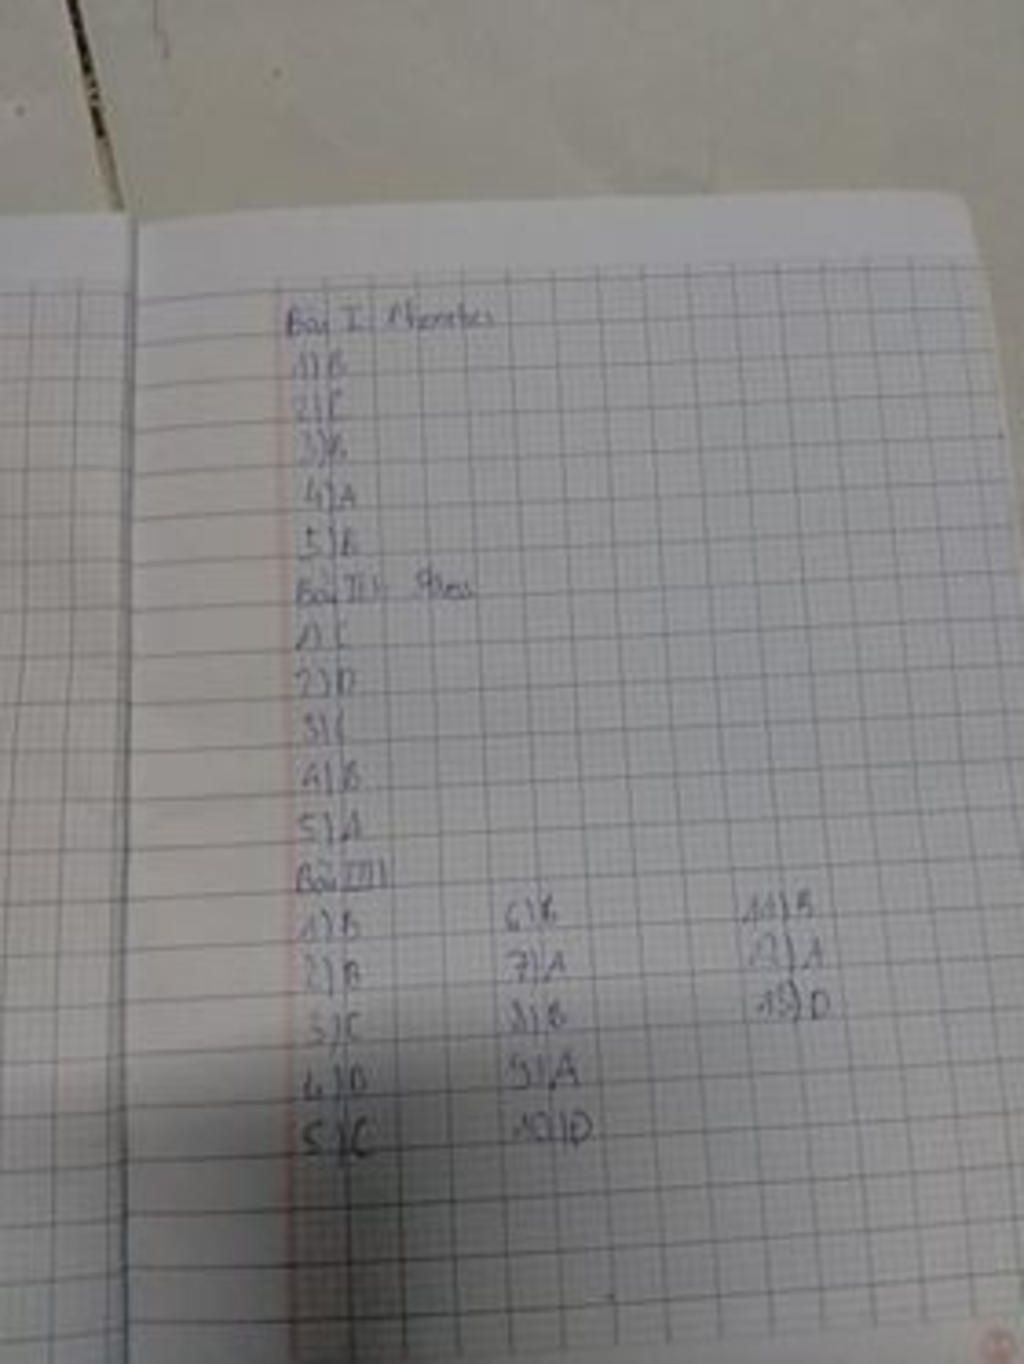 Bài I: Phonetics
1) B
2) C
3) B
4) A
5) B
Bài II: Stress
1) C
2) D
3) C
4) B
5) A
Bài III
1) B 6) B 11) B
2) B 7) A 12) A
3) C 8) B 13) D
4) D 9) A
5) C 10) D